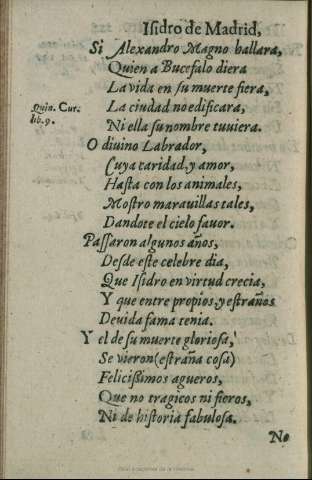 Isidro de Madrid,
Si Alexandro Magno hallara,
Quien a Bucefalo diera
La vida en su muerte fiera,
Quin. Cur. lib. 9.
La ciudad no edificara,
Ni ella su nombre tuuiera.
O diuino Labrador,
Cuya caridad, y amor,
Hasta con los animales,
Mostro marauillas tales,
Dandote el cielo fauor.
Passaron algunos años,
Desde este celebre dia,
Que Isidro en virtud crecia,
Y que entre propios, y estraños
Deuida fama tenia.
Y el de su muerte gloriosa,
Se vieron (estraña cosa)
Felicissimos agueros,
Que no tragicos ni fieros,
Ni de historia fabulosa.
No